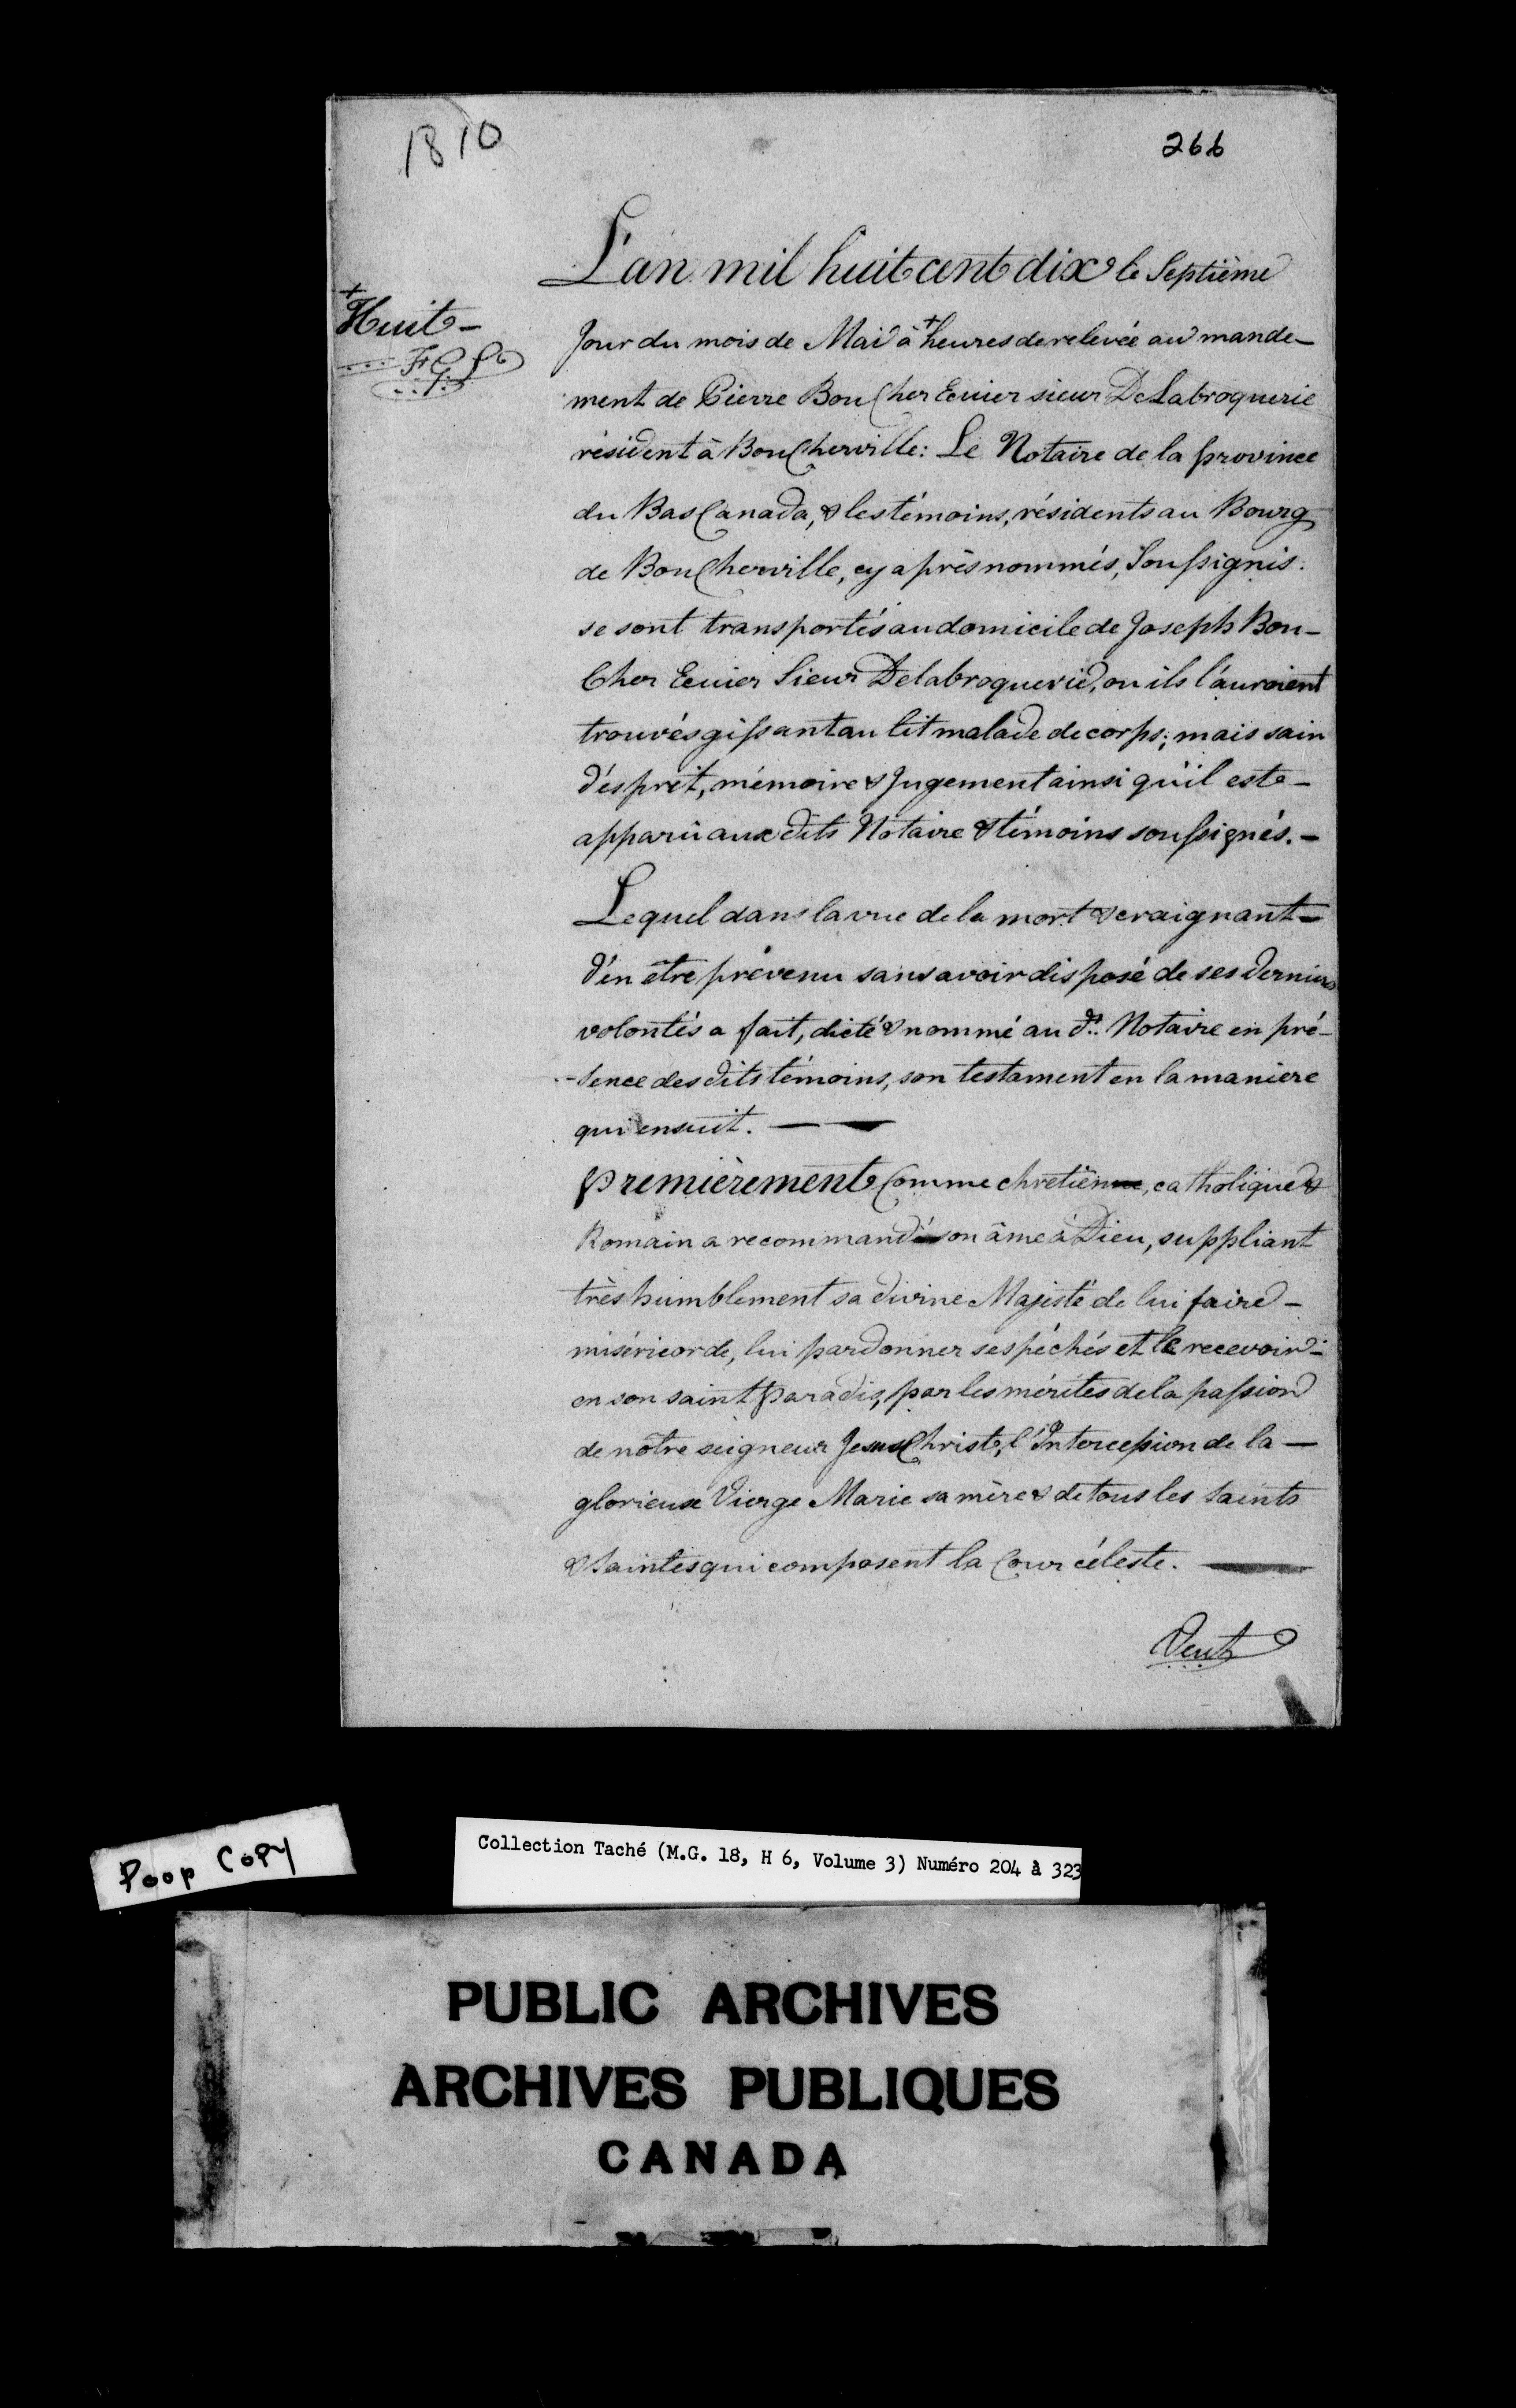 1810
266
L'an mil huit cent dix le Septième
+
Huit -
F G L
Jour du mois de Mai à + heures de relevée au mande-
ment de Pierre BouCher Ecuier sieur DeLabroquerie
résident à BouCherville: Le Notaire de la province
du Bas Canada, & les témoins, résidents au Bourg
de BouCherville, cy après nommés, Soussignés.
se sont transportés au domicile de Joseph Bou-
Cher Ecuier Sieur Delabroquerie, ou ils l'auroient
trouvés gissant au lit malade de corps; mais sain
d'esprit, mémoire & Jugement ainsi qu'il est -
apparû aux dits Notaire & témoins soussignés. -
Lequel dans la vue de la mort & craignant -
d'en être prévenu sans avoir disposé de ses dernières
volontés a fait, dicté & nommé au dt. Notaire en pré-
-sence des dits témoins, son testament en la maniere
qui ensuit. —
Premièrement Comme chretien, catholique &
Romain a recommandé son âme à Dieu, suppliant
très humblement sa divine Majesté de lui faire -
miséricorde, lui pardonner ses péchés et le recevoir -
en son saint Paradis, par les mérites de la passion
de nôtre seigneur Jesus Christ, l'Intercession de la —
glorieuse Vierge Marie sa mère & de tous les Saints
& Saintes qui composent la Cour céleste. —
Veut
Poor Copy
Collection Taché (M.G. 18, H 6, Volume 3) Numéro 204 à 323
PUBLIC ARCHIVES
ARCHIVES PUBLIQUES
CANADA